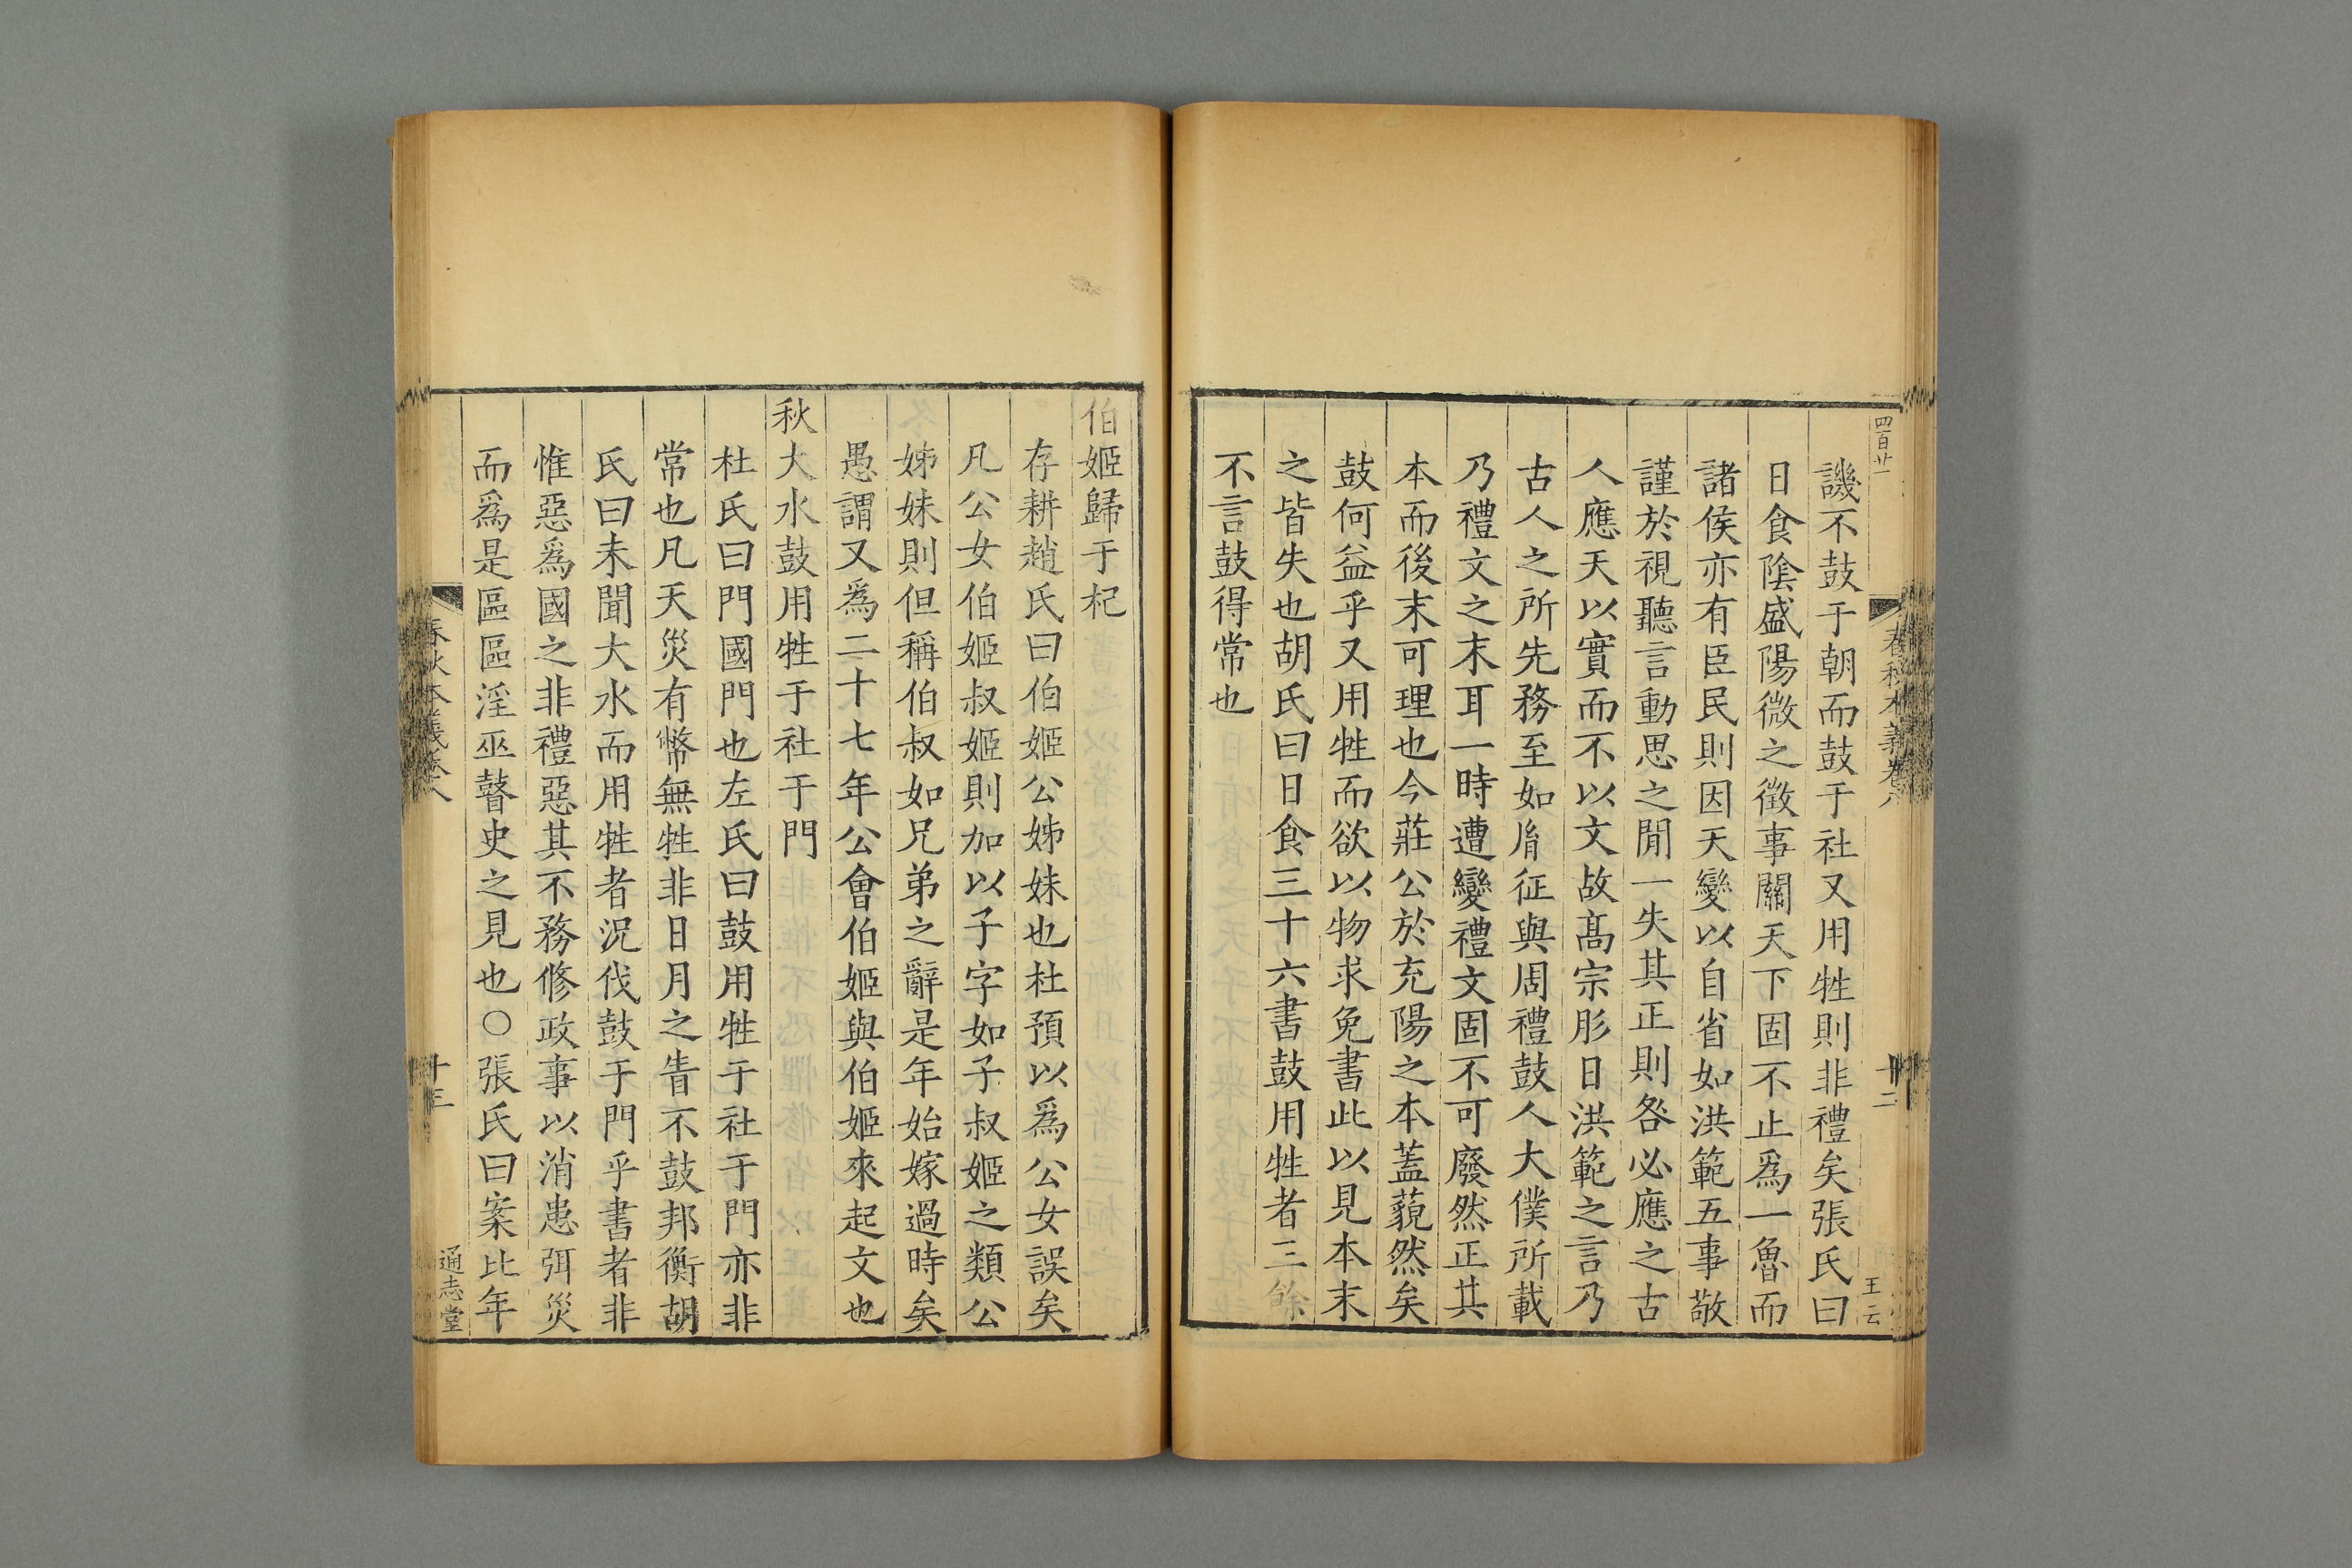 四百廿一
春秋本義卷八
十二
王云
譏不鼓于朝而鼓于社又用牲則非禮矣張氏曰
日食陰盛陽微之徵事關天下固不止爲一魯而
諸侯亦有臣民則因天變以自省如洪範五事敬
謹於視聽言動思之閒一失其正則咎必應之古
人應天以實而不以文故髙宗肜日洪範之言乃
古人之所先務至如胤征與周禮鼓人大僕所載
乃禮文之末耳一時遭變禮文固不可廢然正其
本而後末可理也今莊公於充陽之本蓋藐然矣
鼓何益乎又用牲而欲以物求免書此以見本末
之皆失也胡氏曰日食三十六書鼓用牲者三餘
不言鼓得常也
伯姬歸于杞
存耕趙氏曰伯姬公姊妹也杜預以爲公女誤矣
凡公女伯姬叔姬則加以子字如子叔姬之類公
姊妹則但稱伯叔如兄弟之辭是年始嫁過時矣
愚謂又爲二十七年公會伯姬與伯姬來起文也
秋大水鼓用牲于社于門
杜氏曰門國門也左氏曰鼓用牲于社于門亦非
常也凡天災有幣無牲非日月之眚不鼓邦衡胡
氏曰未聞大水而用牲者況伐鼓于門乎書者非
惟惡爲國之非禮惡其不務修政事以消患弭災
而爲是區區淫巫瞽史之見也○張氏曰案比年
春秋本義卷八
十三
通志堂